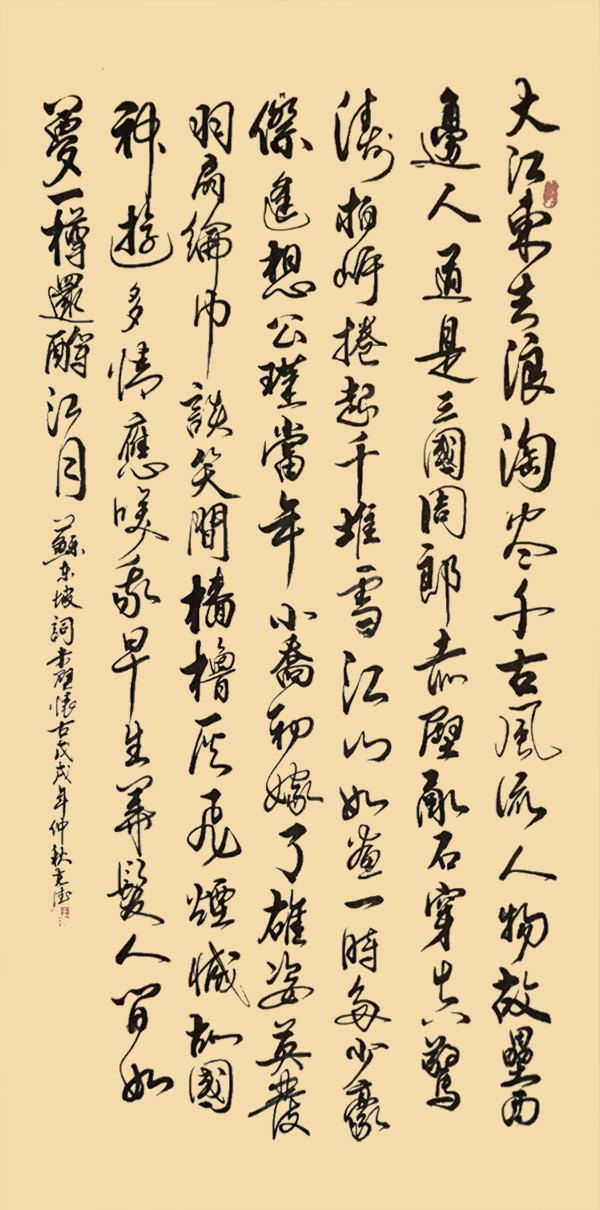 大江東去浪淘尽千古風流人物故壘西
邊人道是三國周郎赤壁亂石穿空驚
濤拍岸捲起千堆雪江山如畫一時多少豪
傑遙想公瑾當年小喬初嫁了雄姿英發
羽扇綸巾談笑間檣櫓灰飛煙滅故國
神遊多情應笑我早生華髮人間如
夢一樽還酹江月
蘇東坡詞赤壁懷古戊戌年仲秋